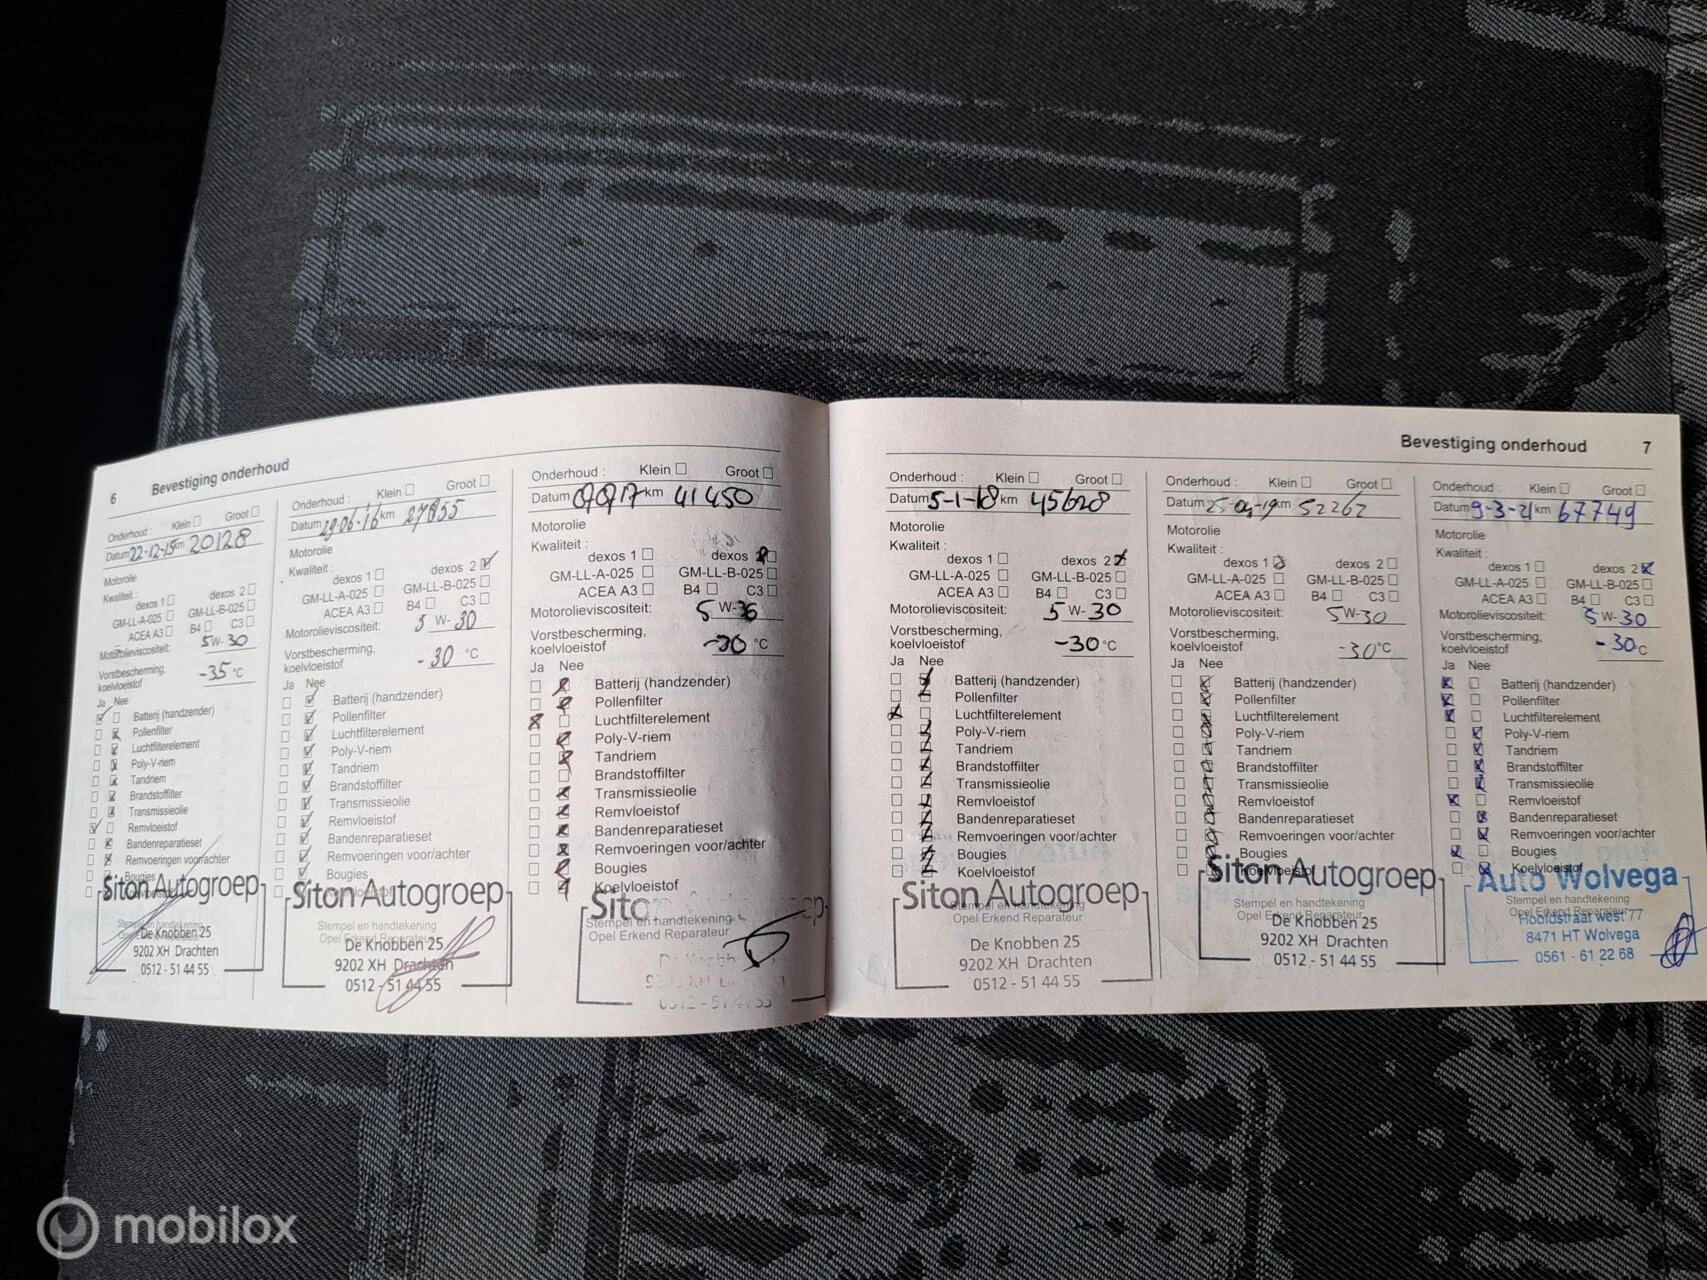 6 Bevestiging onderhoud
Onderhoud : Klein Groot
Datum 22-12-15 km 20128
Motorolie
Kwaliteit :
dexos 1 dexos 2
GM-LL-A-025 GM-LL-B-025
ACEA A3 B4 C3
Motorolieviscositeit: 5W-30
Vorstbescherming,
koelvloeistof -35 °C
Ja Nee
Batterij (handzender)
Pollenfilter
Luchtfilterelement
Poly-V-riem
Tandriem
Brandstoffilter
Transmissieolie
Remvloeistof
Bandenreparatieset
Remvoeringen voor/achter
Bougies
Siton Autogroep
Stempel en handtekening
De Knobben 25
9202 XH Drachten
0512 - 51 44 55
Onderhoud : Klein Groot
Datum 29-06-16 km 27855
Motorolie
Kwaliteit :
dexos 1 dexos 2
GM-LL-A-025 GM-LL-B-025
ACEA A3 B4 C3
Motorolieviscositeit: 5 W- 30
Vorstbescherming,
koelvloeistof -30 °C
Ja Nee
Batterij (handzender)
Pollenfilter
Luchtfilterelement
Poly-V-riem
Tandriem
Brandstoffilter
Transmissieolie
Remvloeistof
Bandenreparatieset
Remvoeringen voor/achter
Bougies
Siton Autogroep
Stempel en handtekening
Opel Erkend Reparateur
De Knobben 25
9202 XH Drachten
0512 - 51 44 55
Onderhoud : Klein Groot
Datum km 41450
Motorolie
Kwaliteit :
dexos 1 dexos 2
GM-LL-A-025 GM-LL-B-025
ACEA A3 B4 C3
Motorolieviscositeit: 5 W-
Vorstbescherming,
koelvloeistof -30 °C
Ja Nee
Batterij (handzender)
Pollenfilter
Luchtfilterelement
Poly-V-riem
Tandriem
Brandstoffilter
Transmissieolie
Remvloeistof
Bandenreparatieset
Remvoeringen voor/achter
Bougies
Koelvloeistof
Stempel en handtekening
Opel Erkend Reparateur
Bevestiging onderhoud 7
Onderhoud : Klein Groot
Datum 5-1-18 km 45628
Motorolie
Kwaliteit :
dexos 1 dexos 2
GM-LL-A-025 GM-LL-B-025
ACEA A3 B4 C3
Motorolieviscositeit: 5 W- 30
Vorstbescherming,
koelvloeistof -30 °C
Ja Nee
Batterij (handzender)
Pollenfilter
Luchtfilterelement
Poly-V-riem
Tandriem
Brandstoffilter
Transmissieolie
Remvloeistof
Bandenreparatieset
Remvoeringen voor/achter
Bougies
Koelvloeistof
Siton Autogroep
Stempel en handtekening
Opel Erkend Reparateur
De Knobben 25
9202 XH Drachten
0512 - 51 44 55
Onderhoud : Klein Groot
Datum km 52262
Motorolie
Kwaliteit :
dexos 1 dexos 2
GM-LL-A-025 GM-LL-B-025
ACEA A3 B4 C3
Motorolieviscositeit: 5W-30
Vorstbescherming,
koelvloeistof -30 °C
Ja Nee
Batterij (handzender)
Pollenfilter
Luchtfilterelement
Poly-V-riem
Tandriem
Brandstoffilter
Transmissieolie
Remvloeistof
Bandenreparatieset
Remvoeringen voor/achter
Bougies
Koelvloeistof
Siton Autogroep
Stempel en handtekening
Opel Erkend Reparateur
De Knobben 25
9202 XH Drachten
0512 - 51 44 55
Onderhoud : Klein Groot
Datum 9-3-21 km 67749
Motorolie
Kwaliteit :
dexos 1 dexos 2
GM-LL-A-025 GM-LL-B-025
ACEA A3 B4 C3
Motorolieviscositeit: 5 W- 30
Vorstbescherming,
koelvloeistof -30 °C
Ja Nee
Batterij (handzender)
Pollenfilter
Luchtfilterelement
Poly-V-riem
Tandriem
Brandstoffilter
Transmissieolie
Remvloeistof
Bandenreparatieset
Remvoeringen voor/achter
Bougies
Koelvloeistof
Auto Wolvega
Stempel en handtekening
Opel Erkend Reparateur
Hoofdstraat west 77
8471 HT Wolvega
0561 - 61 22 68
mobilox